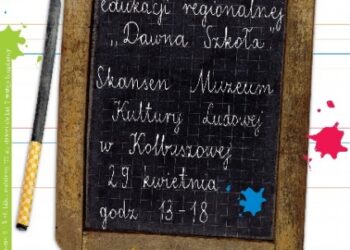 edukacji regionalnej
„Dawna Szkoła"
Skansen Muzeum
Kultury Ludowej
w Kolbuszowej
29 kwietnia
godz 13-18